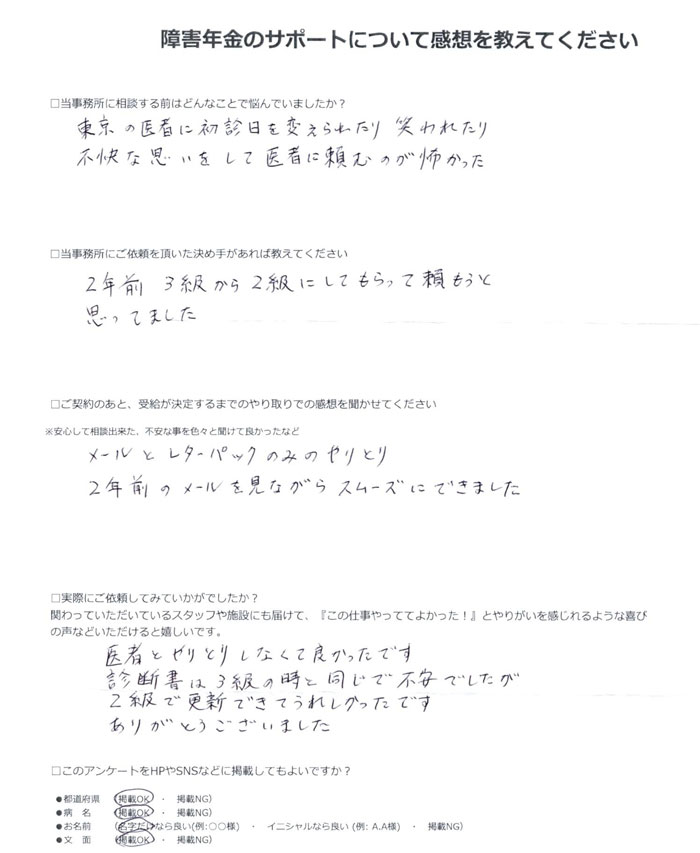 障害年金のサポートについて感想を教えてください
□当事務所に相談する前はどんなことで悩んでいましたか？
東京の医者に初診日を変えられたり 笑われたり
不快な思いをして医者に頼むのが怖かった
□当事務所にご依頼を頂いた決め手があれば教えてください
2年前 3級から2級にしてもらって頼もうと
思ってました
□ご契約のあと、受給が決定するまでのやり取りでの感想を聞かせてください
※安心して相談出来た、不安な事を色々と聞けて良かったなど
メールとレターパックのみのやりとり
2年前のメールを見ながらスムーズにできました
□実際にご依頼してみていかがでしたか？
関わっていただいているスタッフや施設にも届けて、『この仕事やっててよかった！』とやりがいを感じれるような喜び
の声などいただけると嬉しいです。
医者とやりとりしなくて良かったです
診断書は3級の時と同じで不安でしたが
2級で更新できてうれしかったです
ありがとうございました
□このアンケートをHPやSNSなどに掲載してもよいですか？
●都道府県 （掲載OK ・ 掲載NG）
●病 名 （掲載OK ・ 掲載NG）
●お名前 （名字だけなら良い(例:○○様) ・ イニシャルなら良い (例: A.A様) ・ 掲載NG）
●文 面 （掲載OK ・ 掲載NG）